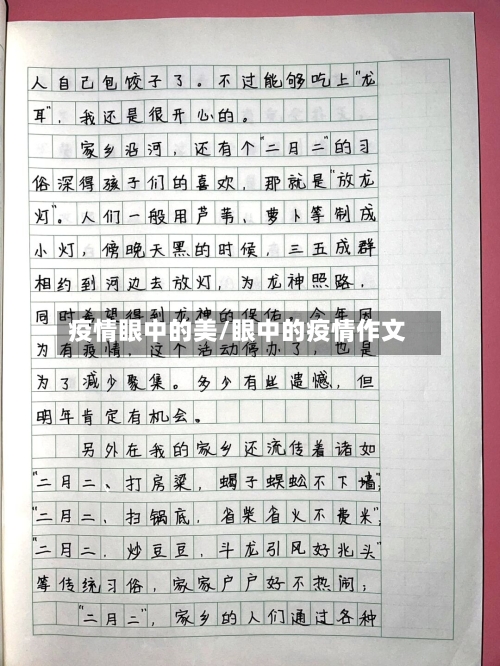 人自己包饺子了。不过能够吃上"龙
耳"，我还是很开心的。
家乡沿河，还有个"二月二"的习
俗深得孩子们的喜欢，那就是"放龙
灯"。人们一般用芦苇、萝卜等制成
小灯，傍晚天黑的时候，三五成群
相约到河边去放灯，为龙神照路，
同时希望得到龙神的保佑。今年因
疫情眼中的美/眼中的疫情作文
为有疫情，这个活动停办了，也是
为了减少聚集。多少有些遗憾，但
明年肯定有机会。
另外在我的家乡还流传着诸如
"二月二、打房梁，蝎子蜈蚣不下墙"
"二月二、扫锅底，省柴省火不费米"
"二月二，炒豆豆，斗龙引风好兆头"
等传统习俗，家家户户好不热闹；
"二月二"，家乡的人们通过各种